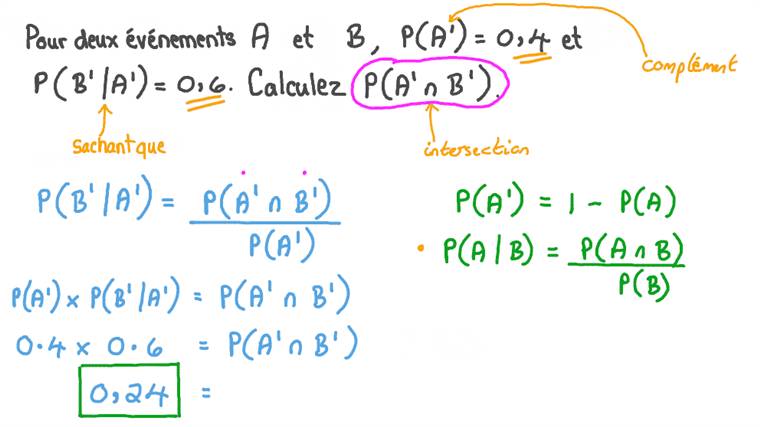 Pour deux événements A et B, P(A') = 0,4 et
complément
P(B'|A') = 0,6. Calculez P(A' ∩ B').
sachant que
intersection
P(B'|A') = P(A' ∩ B') / P(A')
P(A') = 1 - P(A)
• P(A|B) = P(A ∩ B) / P(B)
P(A') × P(B'|A') = P(A' ∩ B')
0.4 × 0.6 = P(A' ∩ B')
0,24 =